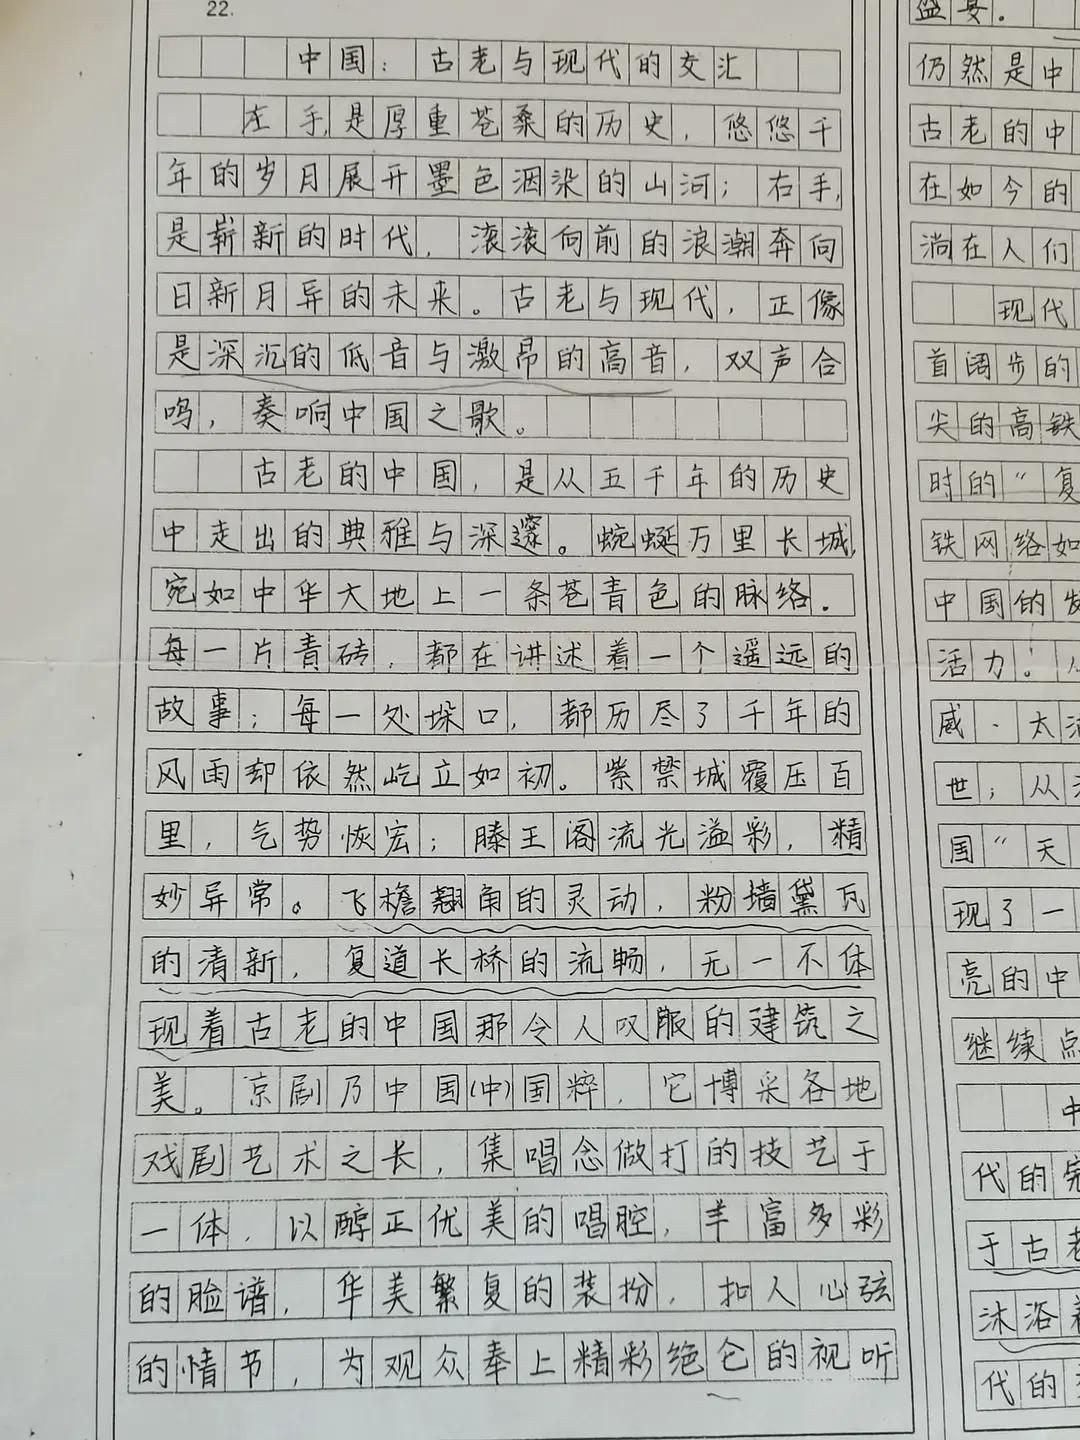 22.
中国：古老与现代的交汇
左手,是厚重苍桑的历史，悠悠千
年的岁月展开墨色洇染的山河；右手,
是崭新的时代，滚滚向前的浪潮奔向
日新月异的未来。古老与现代，正像
是深沉的低音与激昂的高音，双声合
鸣，奏响中国之歌。
古老的中国，是从五千年的历史
中走出的典雅与深邃。蜿蜒万里长城,
宛如中华大地上一条苍青色的脉络.
每一片青砖，都在讲述着一个遥远的
故事；每一处垛口，都历尽了千年的
风雨却依然屹立如初。紫禁城覆压百
里，气势恢宏；滕王阁流光溢彩，精
妙异常。飞檐翘角的灵动，粉墙黛瓦
的清新，复道长桥的流畅，无一不体
现着古老的中国那令人叹服的建筑之
美。京剧乃中国(中)国粹，它博采各地
戏剧艺术之长，集唱念做打的技艺于
一体，以醇正优美的唱腔，丰富多彩
的脸谱，华美繁复的装扮，扣人心弦
的情节，为观众奉上精彩绝仑的视听
盛宴.
仍然是中
古老的中
在如今的
淌在人们
现代
首阔步的
尖的高铁
时的“复
铁网络如
中国的发
活力。
威·太
世；从
国”天
现了一
亮的中
继续点
中
代的
于古老
沐浴着
代的